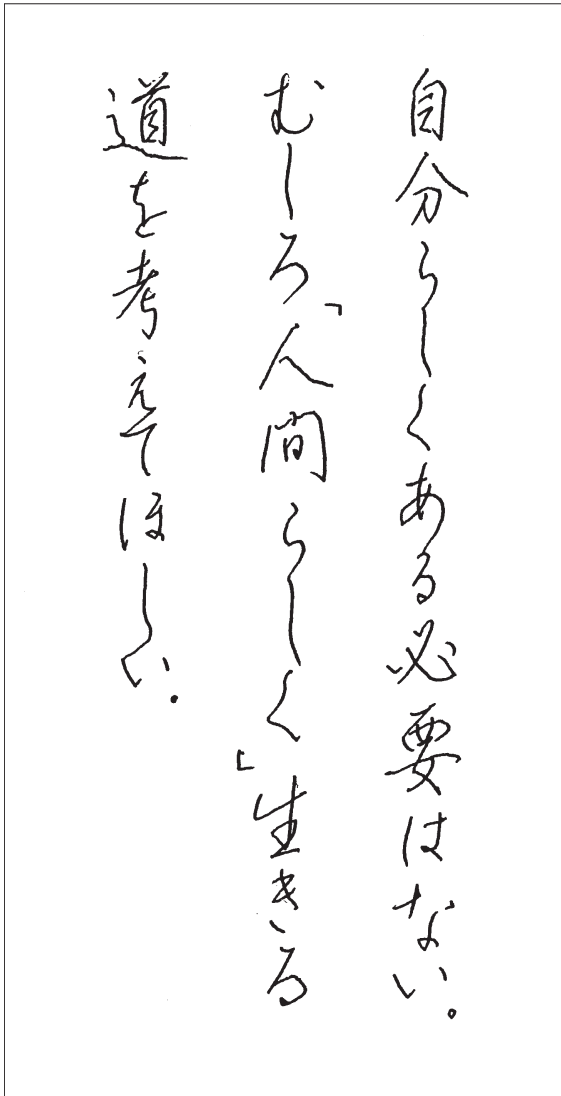 自分らしくある必要はない。
むしろ「人間らしく」生きる
道を考えてほしい。